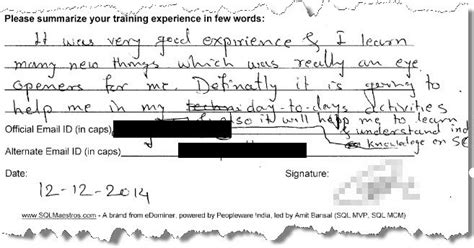 Please summarize your training experience in few words:
It was very good expirience & I learn
many new things which was really an eye
openers for me. Definatly it is going to
help me in my day-to-days activities
& also it will help me to learn
Official Email ID (in caps)
& understand
knowledge on
Alternate Email ID (in caps)
Date:
Signature:
12-12-2014
www.SQLMaestros.com - A brand from eDominer, powered by Peopleware India, led by Amit Bansal (SQL MVP, SQL MCM)